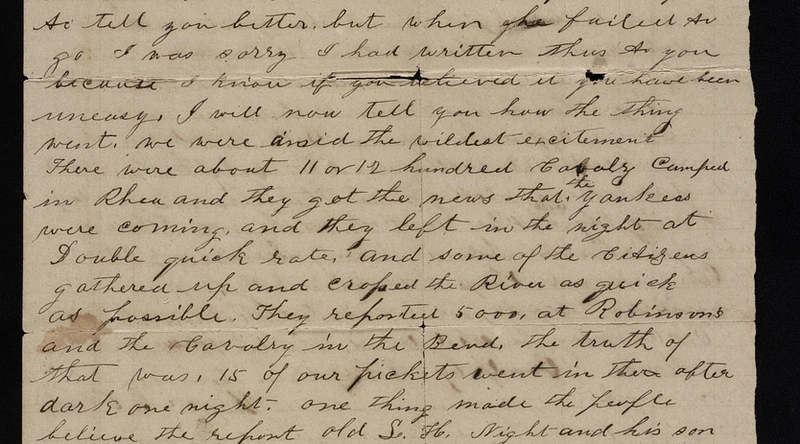 to tell you better, but when she failed to
go I was sorry I had written thus to you
because I know if you recieved it you have been
uneasy. I will now tell you how the thing
went. we were amid the wildest excitement
There were about 11 or 12 hundred Cavalry Camped
in Rhea and they got the news that the Yankees
were coming, and they left in the night at
Double quick rate, and some of the Citizens
gathered up and croped the River as quick
as possible. They reported 5000, at Robinsons
and the Cavalry in the Bend, the truth of
that was, 15 of our pickets went in there after
dark one night. one thing made the people
believe the report old H. Night and his son